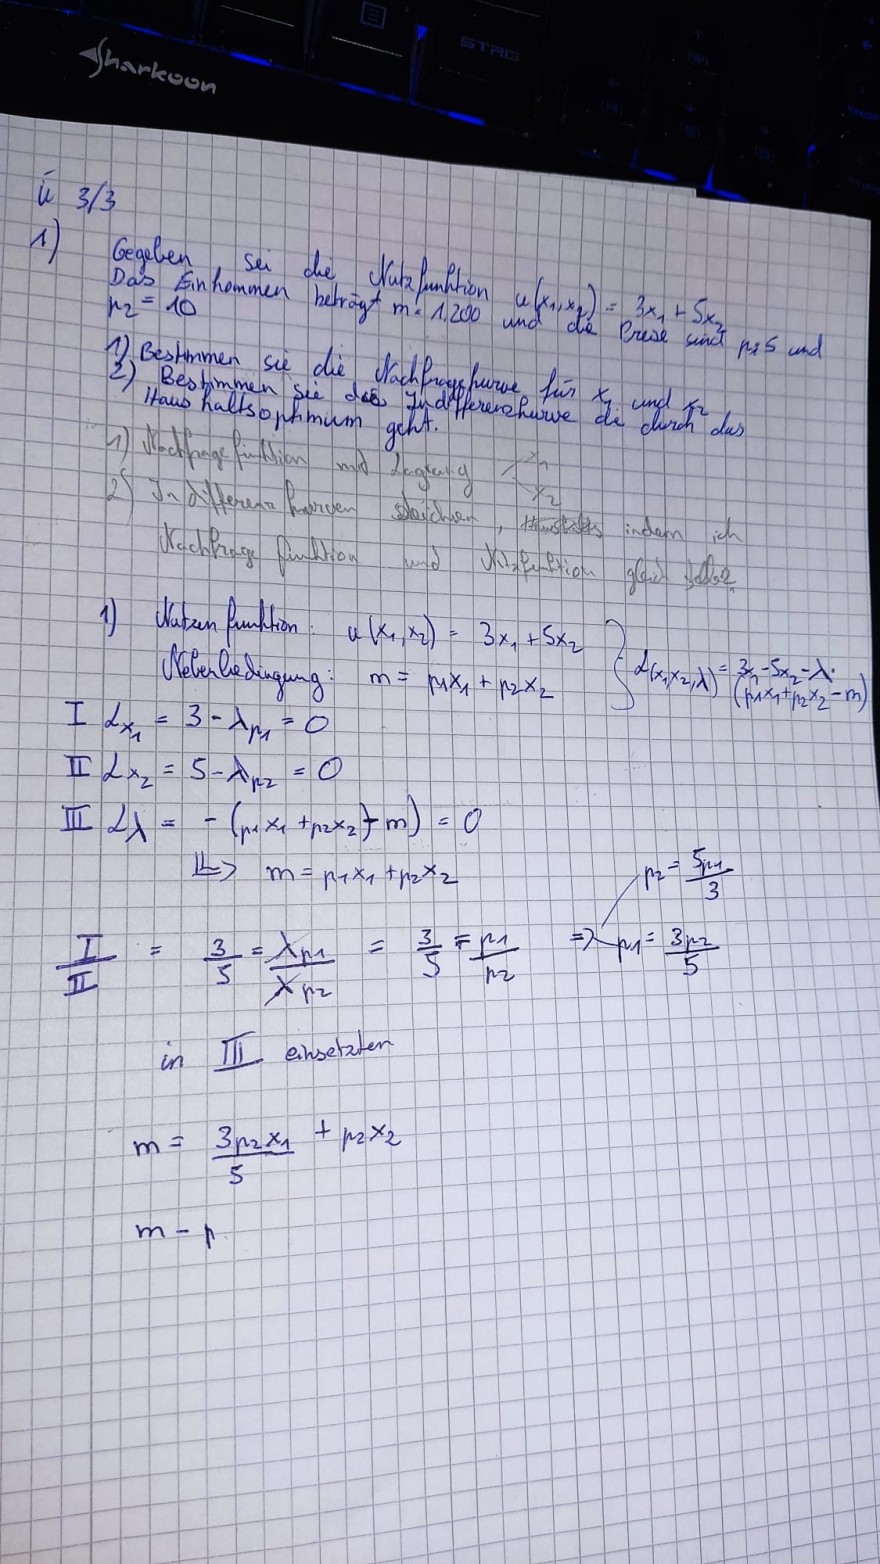 Sharkoon
STRG
Ü 3/3
1) Gegeben sei die Nutzfunktion u(x₁,x₂) = 3x₁ + 5x₂
Das Einkommen beträgt m = 1.200 und die Preise sind p₁=5 und
p₂ = 10
1) Bestimmen sie die Nachfragekurve für x₁ und x₂
2) Bestimmen sie die Indifferenzkurve die durch das
Haushaltsoptimum geht.
1) Nachfragefunktion mit Lagrang x₁
x₂
2) Indifferenzkurven zeichnen, indem ich
Nachfragefunktion und Nutzfunktion gleich setze
1) Nutzenfunktion: u(x₁,x₂) = 3x₁ + 5x₂
Nebenbedingung: m = p₁x₁ + p₂x₂
L(x₁,x₂,λ) = 3x₁ - 5x₂ - λ·
(p₁x₁ + p₂x₂ - m)
I Lx₁ = 3 - λp₁ = 0
II Lx₂ = 5 - λp₂ = 0
III Lλ = - (p₁x₁ + p₂x₂ - m) = 0
=> m = p₁x₁ + p₂x₂
p₂ = 5p₁/3
I/II = 3/5 = λp₁/λp₂ = 3/5 = p₁/p₂ => p₁ = 3p₂/5
in III einsetzten
m = 3p₂x₁/5 + p₂x₂
m - p